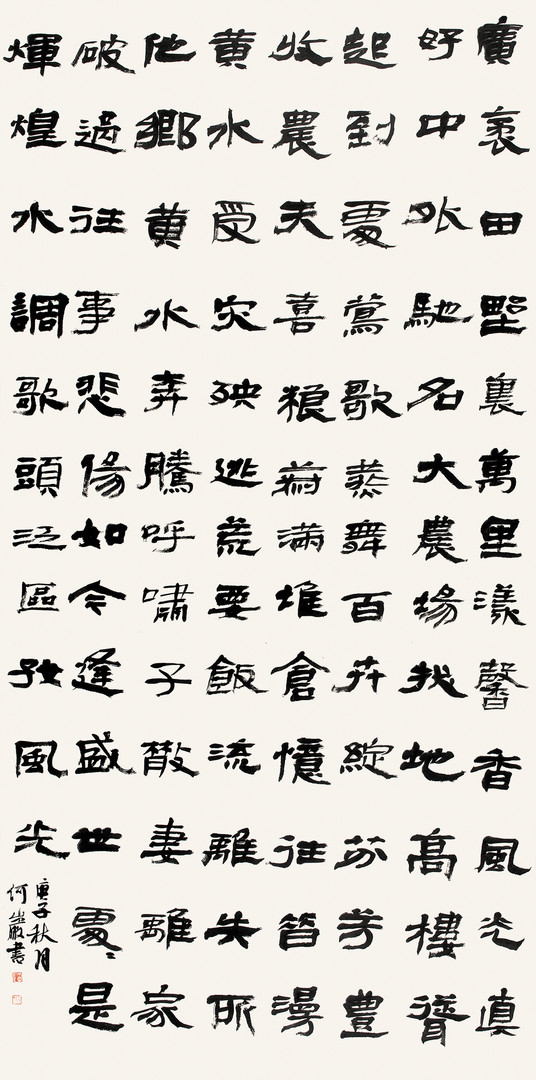 廣袤田墅裏萬里漾馨香風光真
好中外馳名大農場拔地高樓聳
起到處鶯歌燕舞百卉綻芬芳豐
收農夫喜糧滿堆倉憶往昔漫
黃水受災殃逃荒要飯流離失所
他鄉黃水奔騰呼嘯子散妻離家
破過往事悲傷如今逢盛世處〻是
輝煌水調歌頭泛區風光
庚子秋月
何巖書